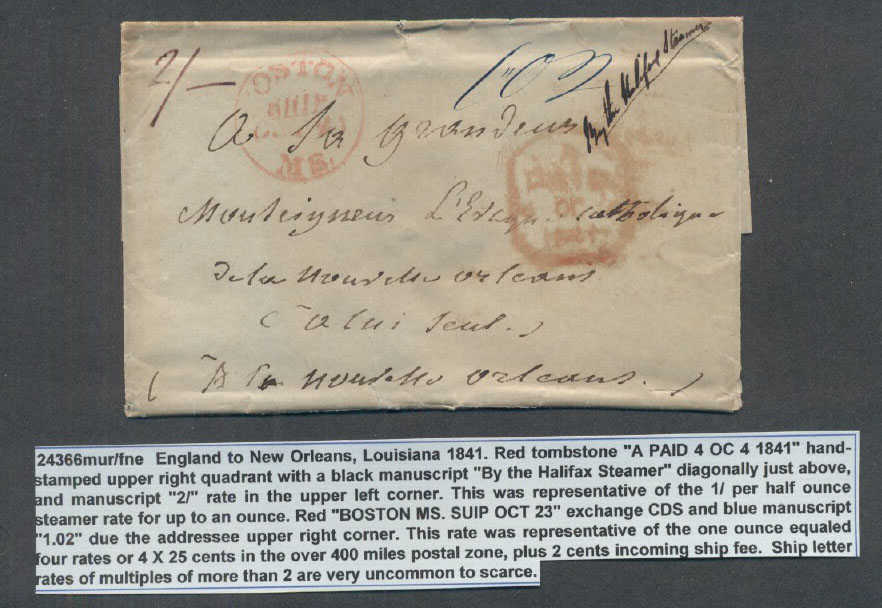 2/-
BOSTON
SHIP
MS.
1"02
By the Halifax Steamer
OC
A Sa Grandeur
Monseigneur L'Evêque catholique
de la Nouvelle Orleans
(a lui seul.)
(A la Nouvelle Orleans.)
24366mur/fne England to New Orleans, Louisiana 1841. Red tombstone "A PAID 4 OC 4 1841" hand-
stamped upper right quadrant with a black manuscript "By the Halifax Steamer" diagonally just above,
and manuscript "2/" rate in the upper left corner. This was representative of the 1/ per half ounce
steamer rate for up to an ounce. Red "BOSTON MS. SUIP OCT 23" exchange CDS and blue manuscript
"1.02" due the addressee upper right corner. This rate was representative of the one ounce equaled
four rates or 4 X 25 cents in the over 400 miles postal zone, plus 2 cents incoming ship fee. Ship letter
rates of multiples of more than 2 are very uncommon to scarce.